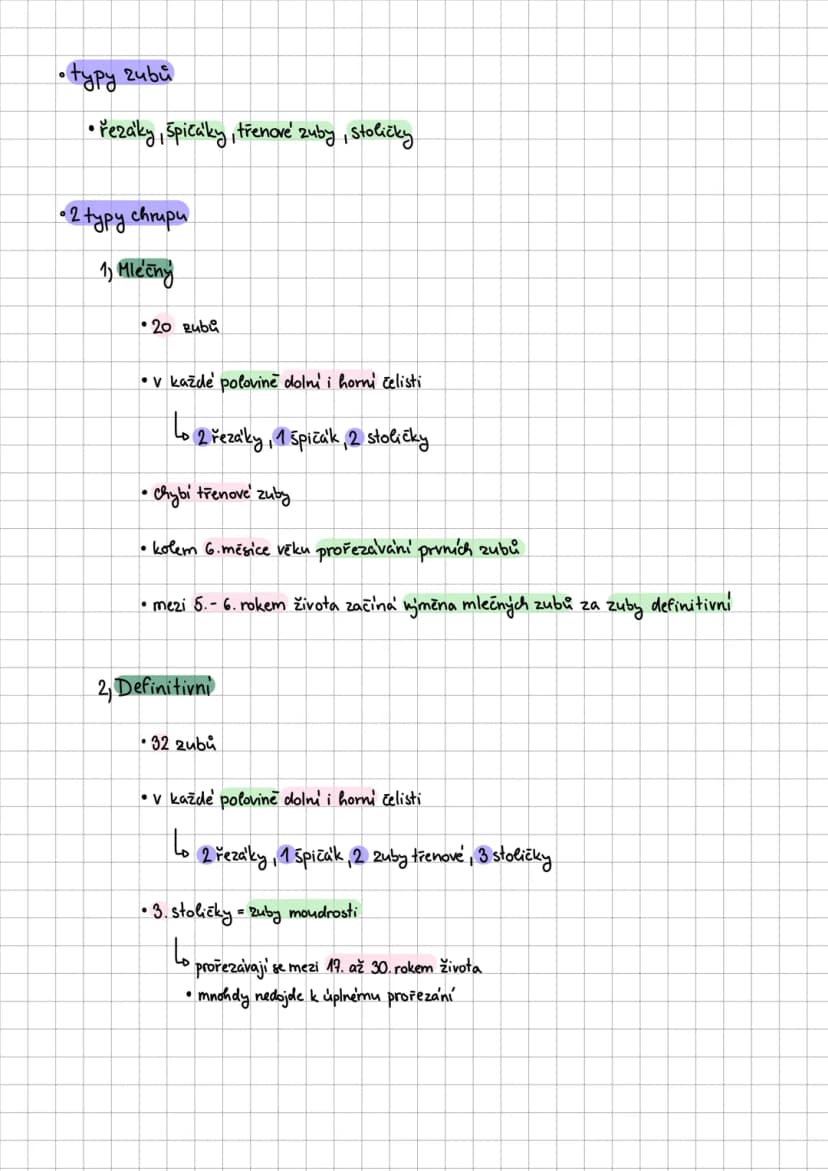 • typy zubů
• řezáky, špičáky, třenové zuby, stoličky
• 2 typy chrupu
1) Mléčný
• 20 zubů
• v každé polovině dolní i horní čelisti
↳ 2 řezáky, 1 špičák, 2 stoličky
• chybí třenové zuby
• kolem 6. měsíce věku prořezávání prvních zubů
• mezi 5. - 6. rokem života začíná výměna mléčných zubů za zuby definitivní
2) Definitivní
• 32 zubů
• v každé polovině dolní i horní čelisti
↳ 2 řezáky, 1 špičák, 2 zuby třenové, 3 stoličky
• 3. stoličky = zuby moudrosti
↳ prořezávají se mezi 17. až 30. rokem života
• mnohdy nedojde k úplnému prořezání